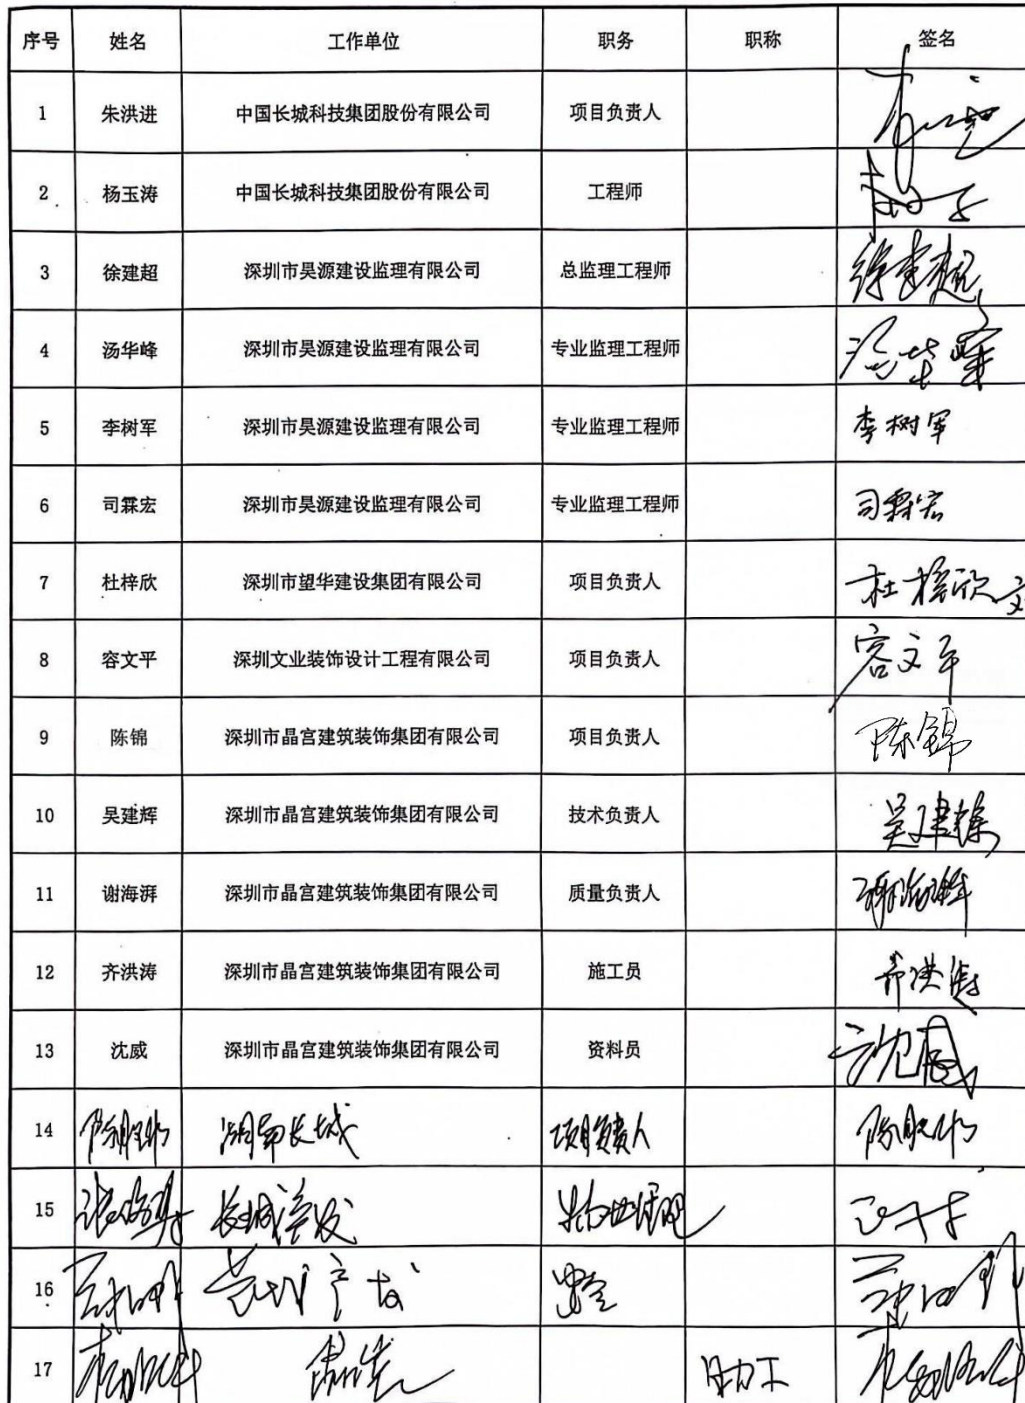 序号 姓名 工作单位 职务 职称 签名
1 朱洪进 中国长城科技集团股份有限公司 项目负责人
2 杨玉涛 中国长城科技集团股份有限公司 工程师
3 徐建超 深圳市昊源建设监理有限公司 总监理工程师 徐建超
4 汤华峰 深圳市昊源建设监理有限公司 专业监理工程师
5 李树军 深圳市昊源建设监理有限公司 专业监理工程师 李树军
6 司霖宏 深圳市昊源建设监理有限公司 专业监理工程师 司霖宏
7 杜梓欣 深圳市望华建设集团有限公司 项目负责人 杜梓欣
8 容文平 深圳文业装饰设计工程有限公司 项目负责人 容文平
9 陈锦 深圳市晶宫建筑装饰集团有限公司 项目负责人 陈锦
10 吴建辉 深圳市晶宫建筑装饰集团有限公司 技术负责人 吴建辉
11 谢海湃 深圳市晶宫建筑装饰集团有限公司 质量负责人
12 齐洪涛 深圳市晶宫建筑装饰集团有限公司 施工员 齐洪涛
13 沈威 深圳市晶宫建筑装饰集团有限公司 资料员 沈威
14 湖南长城 项目负责人
15
16
17 助工